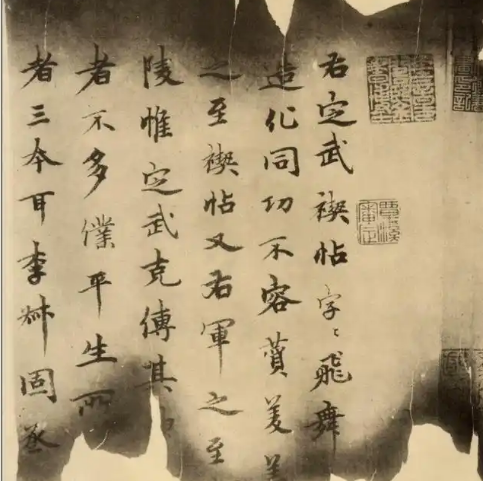 右定武禊帖字〻飛舞
造化同功不容贊美
之至禊帖又右軍之至
陵惟定武克傳其
者不多僕平生所
者三本耳李叔固丞
覃溪審定